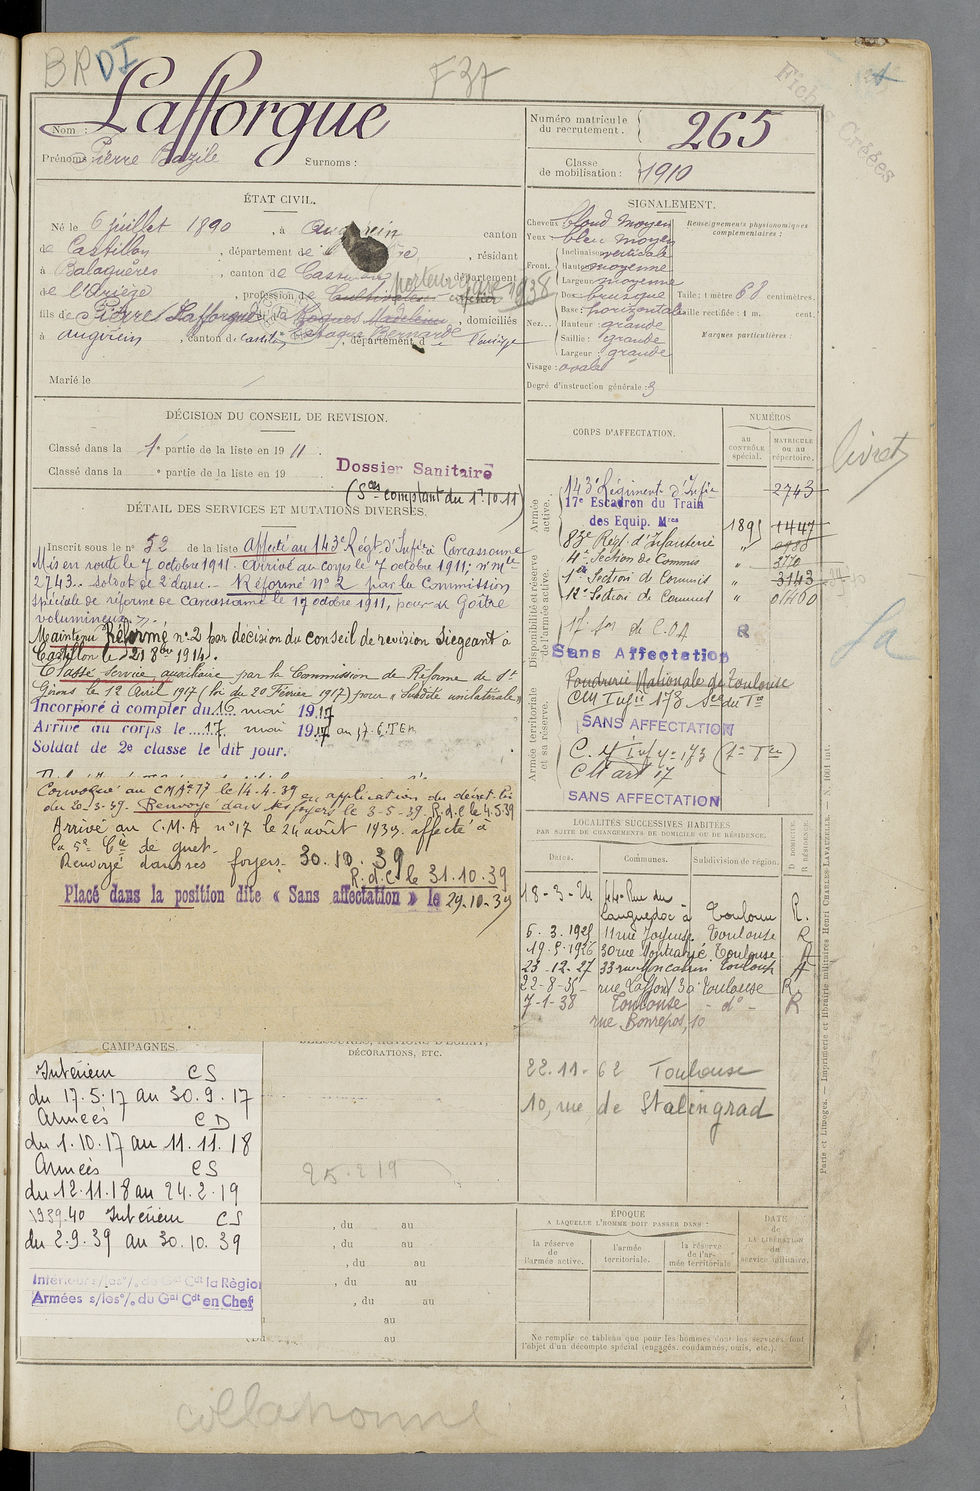 BRDI
F 37
Fiches Créées
Nom : Lafforgue
Prénoms : Pierre Bazile Surnoms :
Numéro matricule du recrutement : 265
Classe de mobilisation : 1910
ÉTAT CIVIL.
Né le 6 juillet 1890, à Augirein canton
de Castillon, département de l' , résidant
à Balaguères, canton de , département
de l'Ariège, profession de Cultivateur 1938
fils de Pierre Lafforgue et de Rogues Madeleine, domiciliés
Laffague Bernarde
à augirein, canton de Castillon, département de l'ariège
Marié le
SIGNALEMENT.
Cheveux blond moyen
Yeux bleu moyen
Front. Inclinaison verticale
Hauteur moyenne
Largeur moyenne
Nez... Dos brusque
Base : horizontale
Hauteur : grande
Saillie : grande
Largeur : grande
Visage : ovale
Degré d'instruction générale : 3
Renseignements physionomiques complémentaires :
Taille : 1 mètre 68 centimètres.
Taille rectifiée : 1 m. cent.
Marques particulières :
DÉCISION DU CONSEIL DE REVISION.
Classé dans la 1e partie de la liste en 1911.
Classé dans la e partie de la liste en 19
Dossier Sanitaire
(Sces comptant du 1.10.11)
DÉTAIL DES SERVICES ET MUTATIONS DIVERSES.
Inscrit sous le n° 52 de la liste Affecté au 143e Régt d'Infie à Carcassonne
Mis en route le 7 octobre 1911. Arrivé au corps le 7 octobre 1911; n° mle
2743. soldat de 2e classe. Réformé N° 2 par la Commission
spéciale de réforme de Carcassonne le 17 octobre 1911, pour « Goitre
volumineux ».
Maintenu Réformé n° 2 par décision du conseil de revision siégeant à
Castillon le 21 8bre 1914.
Classé service auxiliaire par la Commission de Réforme de St
Girons le 12 Avril 1917 (loi du 20 Février 1917) pour « Surdité unilatérale »
Incorporé à compter du 16 mai 1917
Arrivé au corps le 17 mai 1917 au 17e
Soldat de 2e classe le dit jour.
Convoqué au CMA n° 17 le 14-4-39 en application du décret-loi
du 20-3-39. Renvoyé dans ses foyers le 3-5-39. R.d.c le 4.5.39
Arrivé au C.M.A n° 17 le 24 août 1939. affecté à
la 5e Cie de guet.
Renvoyé dans ses foyers. 30.10.39
R.d.C le 31.10.39
Placé dans la position dite « Sans affectation » le 29-10-39
CORPS D'AFFECTATION.
NUMÉROS
au CONTRÔLE spécial.
MATRICULE ou au répertoire.
Armée active.
Disponibilité et réserve de l'armée active.
Armée territoriale et sa réserve.
143e Régiment d'Infie 2743
17e Escadron du Train
des Equip. Mres 1895 1447
83e Régt d'Infanterie "
4e Section de Commis " 3770
1e Section de Commis " 3143
12e Section de Commis " 01460
Sans Affectation
Poudrerie Nationale de Toulouse
CM Infie 173
SANS AFFECTATION
C.M Infie 173
CM art 17
SANS AFFECTATION
livret
La
LOCALITÉS SUCCESSIVES HABITÉES
PAR SUITE DE CHANGEMENTS DE DOMICILE OU DE RÉSIDENCE.
Dates. Communes. Subdivision de région. D DOMICILE. R RÉSIDENCE.
18-3-24 44 Rue du Languedoc à Toulouse R.
6.3.1925 11 rue Joyeuse Toulouse R
19.5.1926 30 rue Toulouse
23-12-27 33 rue Toulouse
22-8-35 rue Laffon 30 Toulouse R.
7-1-38 Toulouse - d° - R
rue Bonrepos, 10
22.11.62 Toulouse
10, rue de Stalingrad
CAMPAGNES.
Intérieur CS
du 17.5.17 au 30.9.17
Armées CD
du 1.10.17 au 11.11.18
Armées CS
du 12.11.18 au 24.2.19
1939-40 Intérieur CS
du 2.9.39 au 30.10.39
Intérieur s/les°/° du Gal Cdt la Région
Armées s/les°/° du Gal Cdt en Chef
BLESSURES, ACTIONS D'ÉCLAT,
DÉCORATIONS, ETC.
25.2.19
, du au
, du au
, du au
, du au
, du au
au
Du au
ÉPOQUE
A LAQUELLE L'HOMME DOIT PASSER DANS :
la réserve de l'armée active.
l'armée territoriale.
la réserve de l'armée territoriale
DATE de LA LIBÉRATION du service militaire.
Ne remplir ce tableau que pour les hommes dont les services font
l'objet d'un décompte spécial (engagés, condamnés, omis, etc.).
Paris et Limoges. — Imprimerie et librairie militaires Henri CHARLES-LAVAUZELLE. — N. 1601 int.
collationné